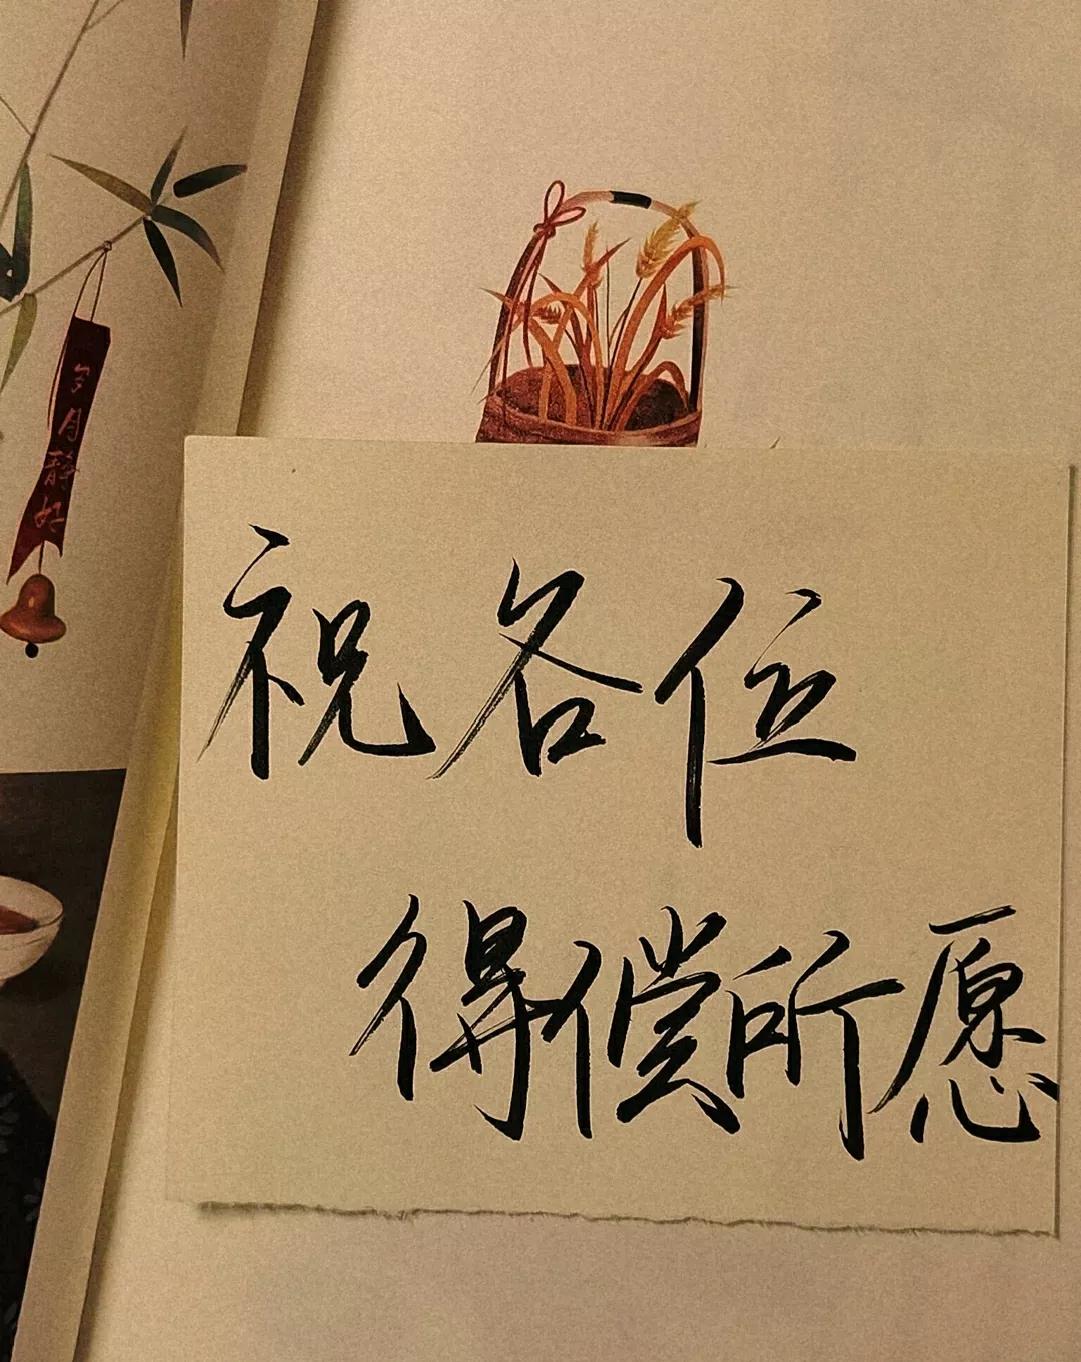 岁月静好
祝各位
得偿所愿